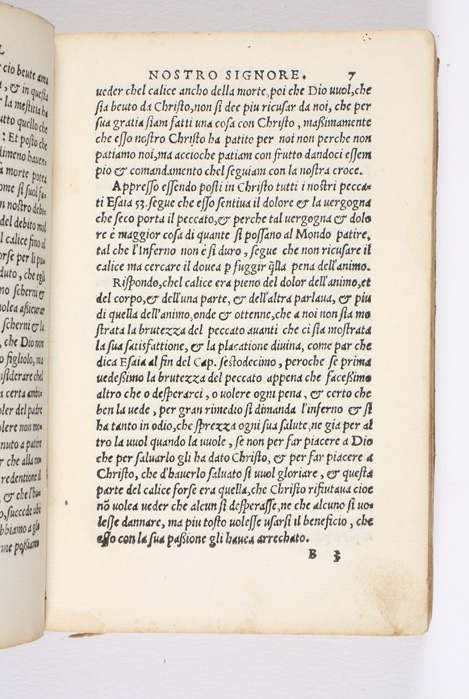 L
r cio beute ama
, & in questa
r la mestitia ha
utto quello che
: Et posto che
dimeno hauen
a morte potea
ome si suol
n nostro debi
del debito mol
l calice fino al
orse per li pu
duto, che egli
no scherni &
uolea assicurar
scherni & la
, che Dio non
o figliolo, ma
nsiderare chel
a certa ambi
oler del patre
lere non con
nuto a patire
r che alla no
redentione il
, & che l'hu
o, succede ubi
bbiamo a glo
me possiamo
NOSTRO SIGNORE. 7
ueder chel calice ancho della morte poi che Dio uuol, che
sia beuto da Christo, non si dee piu ricusar da noi, che per
sua gratia siam fatti una cosa con Christo, maßimamente
che esso nostro Christo ha patito per noi non perche non
patiamo noi, ma accioche patiam con frutto dandoci essem
pio & comandamento chel seguiam con la nostra croce.
Appresso essendo posti in Christo tutti i nostri pecca
ti Esaia 53. segue che esso sentiua il dolore & la uergogna
che seco porta il peccato, & perche tal uergogna & dolo
re è maggior cosa di quante si possano al Mondo patire,
tal che l'Inferno non è si duro, segue che non ricusare il
calice ma cercare il douea p fuggir q̃lla pena dell'animo.
Rispondo, chel calice era pieno del dolor dell'animo, et
del corpo, & dell'una parte, & dell'altra parlaua, & piu
di quella dell'animo, onde & ottenne, che a noi non sia mo
strata la brutezza del peccato auanti che ci sia mostrata
la sua satisfattione, & la placatione diuina, come par che
dica Esaia al fin del Cap. sestodecimo, peroche se prima
uedeßimo la brutezza del peccato appena che faceßimo
altro che o desperarci, o uolere ogni pena, & certo che
ben la uede, per gran rimedio si dimanda l'inferno & si
ha tanto in odio, che sprezza ogni sua salute, ne gia per al
tro la uuol quando la uuole, se non per far piacere a Dio
che per saluarlo gli ha dato Christo, & per far piacere a
Christo, che d'hauerlo saluato si uuol gloriare, & questa
parte del calice forse era quella, che Christo rifiutaua cioe
nõ uolea ueder che alcun si desperasse, ne che alcuno si uo
lesse dannare, ma piu tosto uolesse usarsi il beneficio, che
esso con la sua paßione gli hauea arrechato.
B 3